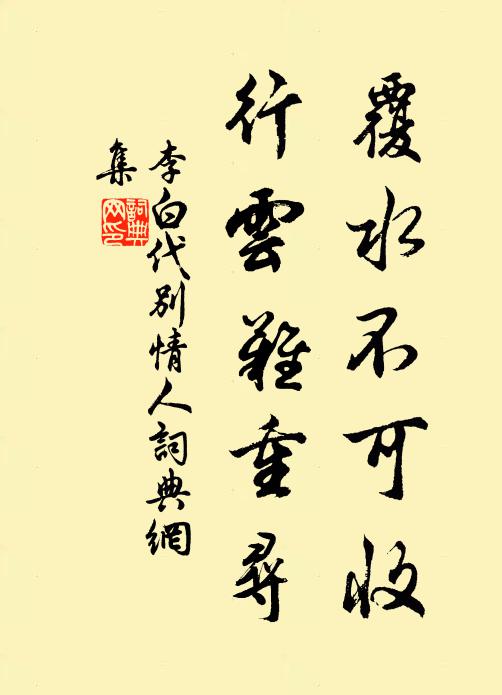 覆水不可收
行雲難重尋
李白代别情人詞典網
集
詞典
网印